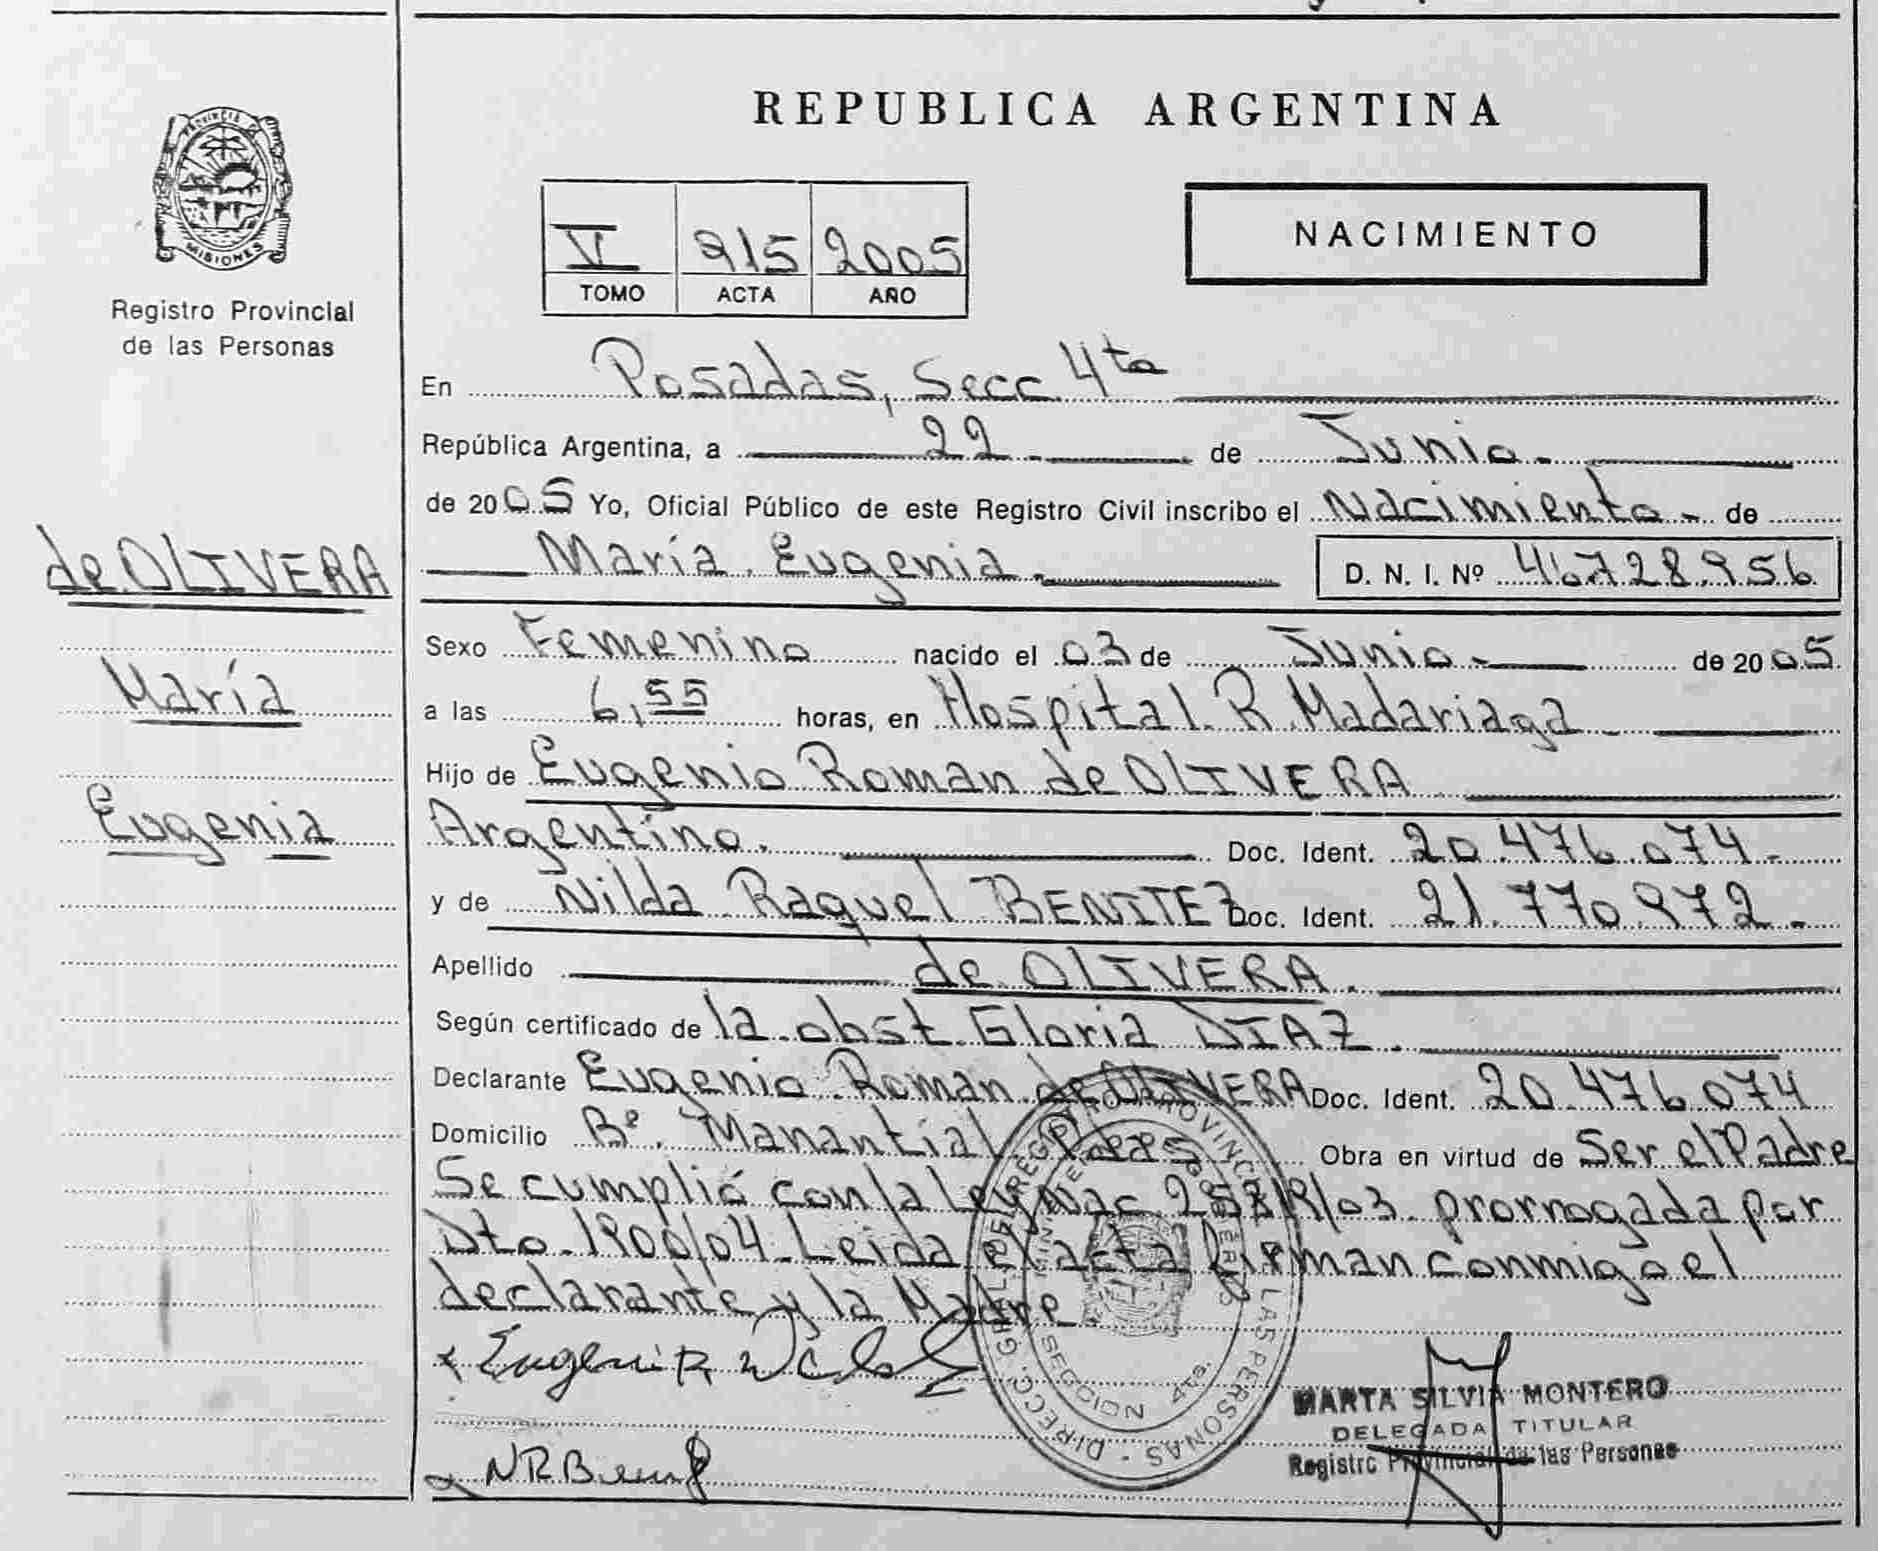 REPUBLICA ARGENTINA
PROVINCIA DE MISIONES
Registro Provincial
de las Personas
V 915 2005
TOMO ACTA AÑO
NACIMIENTO
En Posadas, Secc 4ta
República Argentina, a 22 de Junio
de 2005 Yo, Oficial Público de este Registro Civil inscribo el Nacimiento de
María Eugenia D. N. I. Nº 46728956
de OLIVERA
María
Eugenia
Sexo Femenino nacido el 03 de Junio de 2005
a las 6,55 horas, en Hospital R. Madariaga
Hijo de Eugenio Roman de OLIVERA
Argentino. Doc. Ident. 20.476.074
y de Nilda Raquel BENITEZ Doc. Ident. 21.770.972
Apellido de OLIVERA.
Según certificado de la obst. Gloria DIAZ.
Declarante Eugenio Roman de OLIVERA Doc. Ident. 20.476.074
Domicilio Bº. Manantial Obra en virtud de Ser el Padre
Se cumplió con la Ley Nac. 25819/03 prorrogada por
Dto. 1900/04. Leida el acta firman conmigo el
declarante y la Madre
Eugenio R
NRB
DIRECC. GRAL. DEL REGISTRO PROVINCIAL DE LAS PERSONAS
SECCION 4ta.
MARTA SILVIA MONTERO
DELEGADA TITULAR
Registro Provincial de las Personas